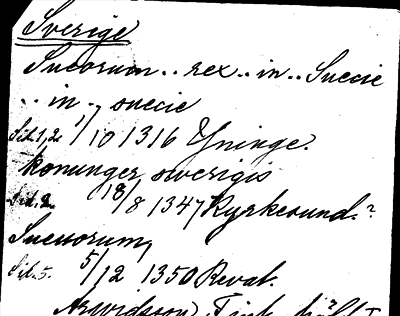 Sverige
Sueorum .. rex .. in .. Suecie
.. in .. suecie
Sid. 1, 2 1/10 1316 Yninge.
konunger swerigis
Sid. 2. 18/8 1347 Kyrkesund.?
Sueuorum,
Sid. 5. 5/12 1350 Reval.
Arwidsson, Finl.